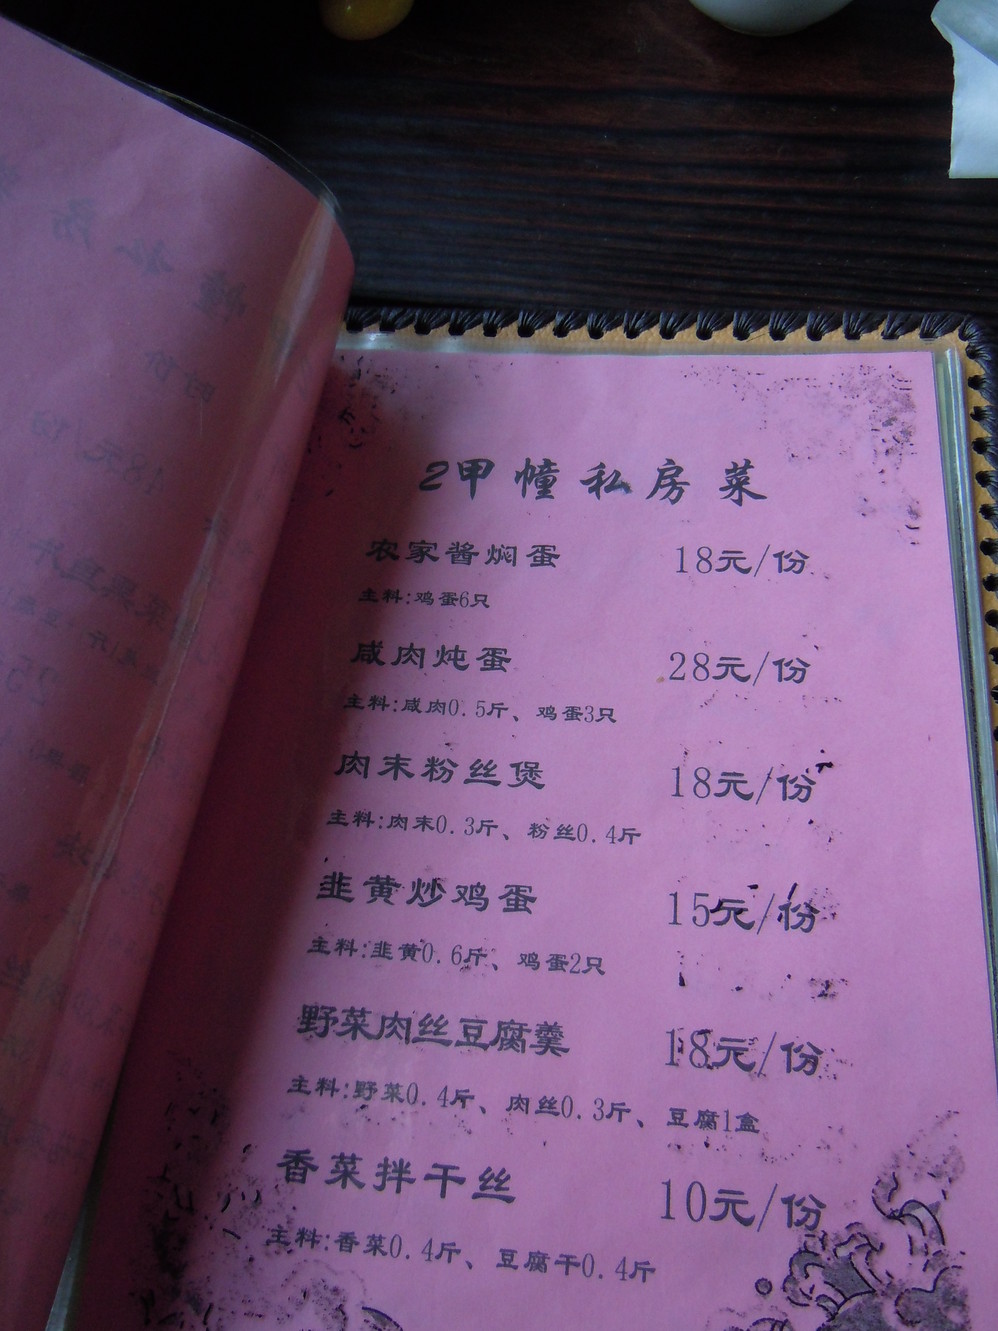 2甲幢私房菜
农家酱焖蛋 18元/份
主料:鸡蛋6只
咸肉炖蛋 28元/份
主料:咸肉0.5斤、鸡蛋3只
肉末粉丝煲 18元/份
主料:肉末0.3斤、粉丝0.4斤
韭黄炒鸡蛋 15元/份
主料:韭黄0.6斤、鸡蛋2只
野菜肉丝豆腐羹 18元/份
主料:野菜0.4斤、肉丝0.3斤、豆腐1盒
香菜拌干丝 10元/份
主料:香菜0.4斤、豆腐干0.4斤